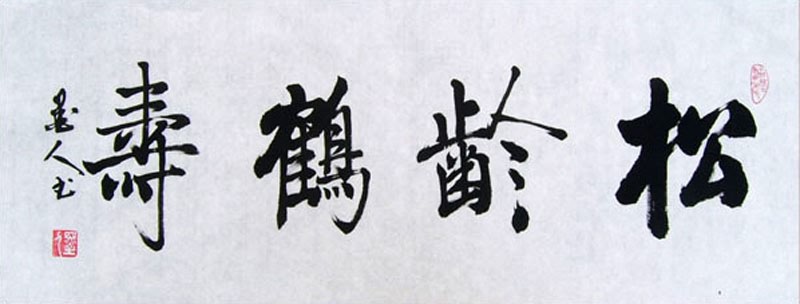 松齡鶴壽
墨人书